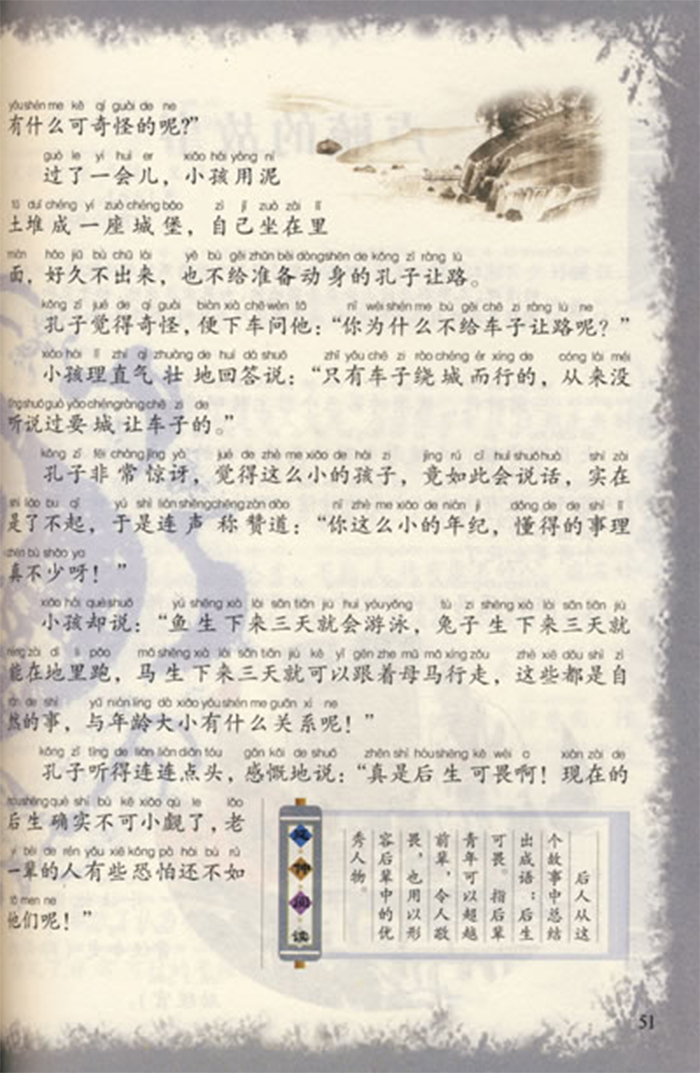 yǒu shén me kě qí guài de ne
有什么可奇怪的呢?”
guò le yí huì er xiǎo hái yòng ní
过了一会儿，小孩用泥
tǔ duī chéng yí zuò chéng bǎo zì jǐ zuò zài lǐ
土堆成一座城堡，自己坐在里
miàn hǎo jiǔ bù chū lái yě bù gěi zhǔn bèi dòng shēn de kǒng zǐ ràng lù
面，好久不出来，也不给准备动身的孔子让路。
kǒng zǐ jué de qí guài biàn xià chē wèn tā nǐ wèi shén me bù gěi chē zi ràng lù ne
孔子觉得奇怪，便下车问他：“你为什么不给车子让路呢？”
xiǎo hái lǐ zhí qì zhuàng de huí dá shuō zhǐ yǒu chē zi rào chéng ér xíng de cóng lái méi
小孩理直气壮地回答说：“只有车子绕城而行的，从来没
tīng shuō guò yào chéng ràng chē zi de
听说过要城让车子的。”
kǒng zǐ fēi cháng jīng yà jué de zhè me xiǎo de hái zi jìng rú cǐ huì shuō huà shí zài
孔子非常惊讶，觉得这么小的孩子，竟如此会说话，实在
shì liǎo bu qǐ yú shì lián shēng chēng zàn dào nǐ zhè me xiǎo de nián jì dǒng de de shì lǐ
是了不起，于是连声称赞道：“你这么小的年纪，懂得的事理
zhēn bù shǎo ya
真不少呀！”
xiǎo hái què shuō yú shēng xià lái sān tiān jiù huì yóu yǒng tù zi shēng xià lái sān tiān jiù
小孩却说：“鱼生下来三天就会游泳，兔子生下来三天就
néng zài dì lǐ pǎo mǎ shēng xià lái sān tiān jiù kě yǐ gēn zhe mǔ mǎ xíng zǒu zhè xiē dōu shì zì
能在地里跑，马生下来三天就可以跟着母马行走，这些都是自
rán de shì yǔ nián líng dà xiǎo yǒu shén me guān xì ne
然的事，与年龄大小有什么关系呢！”
kǒng zǐ tīng de lián lián diǎn tóu gǎn kǎi de shuō zhēn shì hòu shēng kě wèi a xiàn zài de
孔子听得连连点头，感慨地说：“真是后生可畏啊！现在的
hòu shēng què shí bù kě xiǎo qù le lǎo
后生确实不可小觑了，老
yí bèi de rén yǒu xiē kǒng pà hái bù rú
一辈的人有些恐怕还不如
tā men ne
他们呢！”
阅
读
后人从这
个故事中总结
出成语：后生
可畏。指后辈
青年可以超越
前辈，令人敬
畏，也用以形
容后辈中的优
秀人物。
51